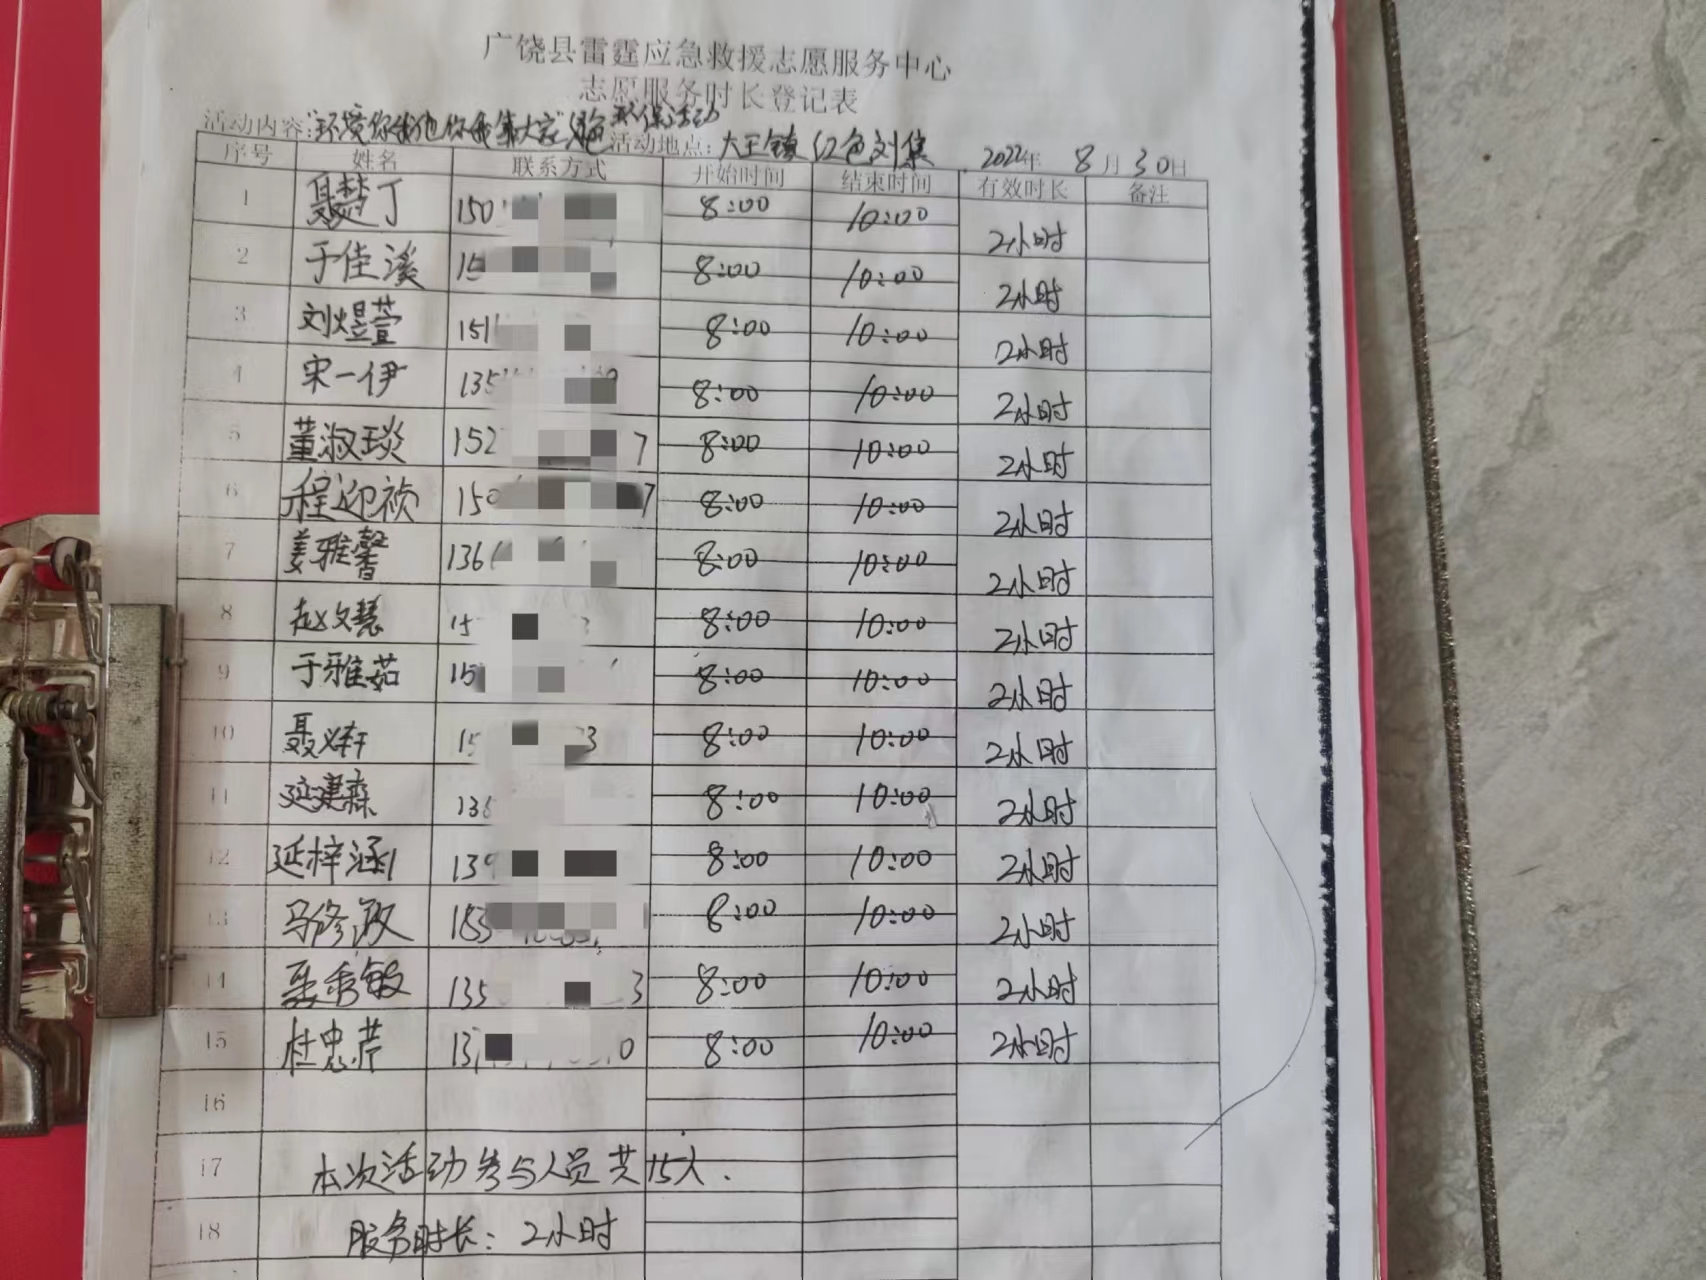 广饶县雷霆应急救援志愿服务中心
志愿服务时长登记表
活动内容:"环境你我他 你我靠大家" 环保活动 活动地点: 大王镇 红色刘集 2022年 8月30日
序号 姓名 联系方式 开始时间 结束时间 有效时长 备注
1 聂楚丁 150 8:00 10:00 2小时
2 于佳溪 15 8:00 10:00 2小时
3 刘煜萱 151 8:00 10:00 2小时
4 宋一伊 135 8:00 10:00 2小时
5 董淑琰 152 7 8:00 10:00 2小时
6 程迎祯 150 7 8:00 10:00 2小时
7 姜雅馨 136 8:00 10:00 2小时
8 赵文慧 15 8:00 10:00 2小时
9 于雅茹 15 8:00 10:00 2小时
10 聂义轩 15 3 8:00 10:00 2小时
11 延建森 136 8:00 10:00 2小时
12 延梓涵 139 8:00 10:00 2小时
13 马修政 153 8:00 10:00 2小时
14 聂秀敏 135 3 8:00 10:00 2小时
15 杜忠芹 13 0 8:00 10:00 2小时
16
17 本次活动参与人员共15人.
18 服务时长: 2小时